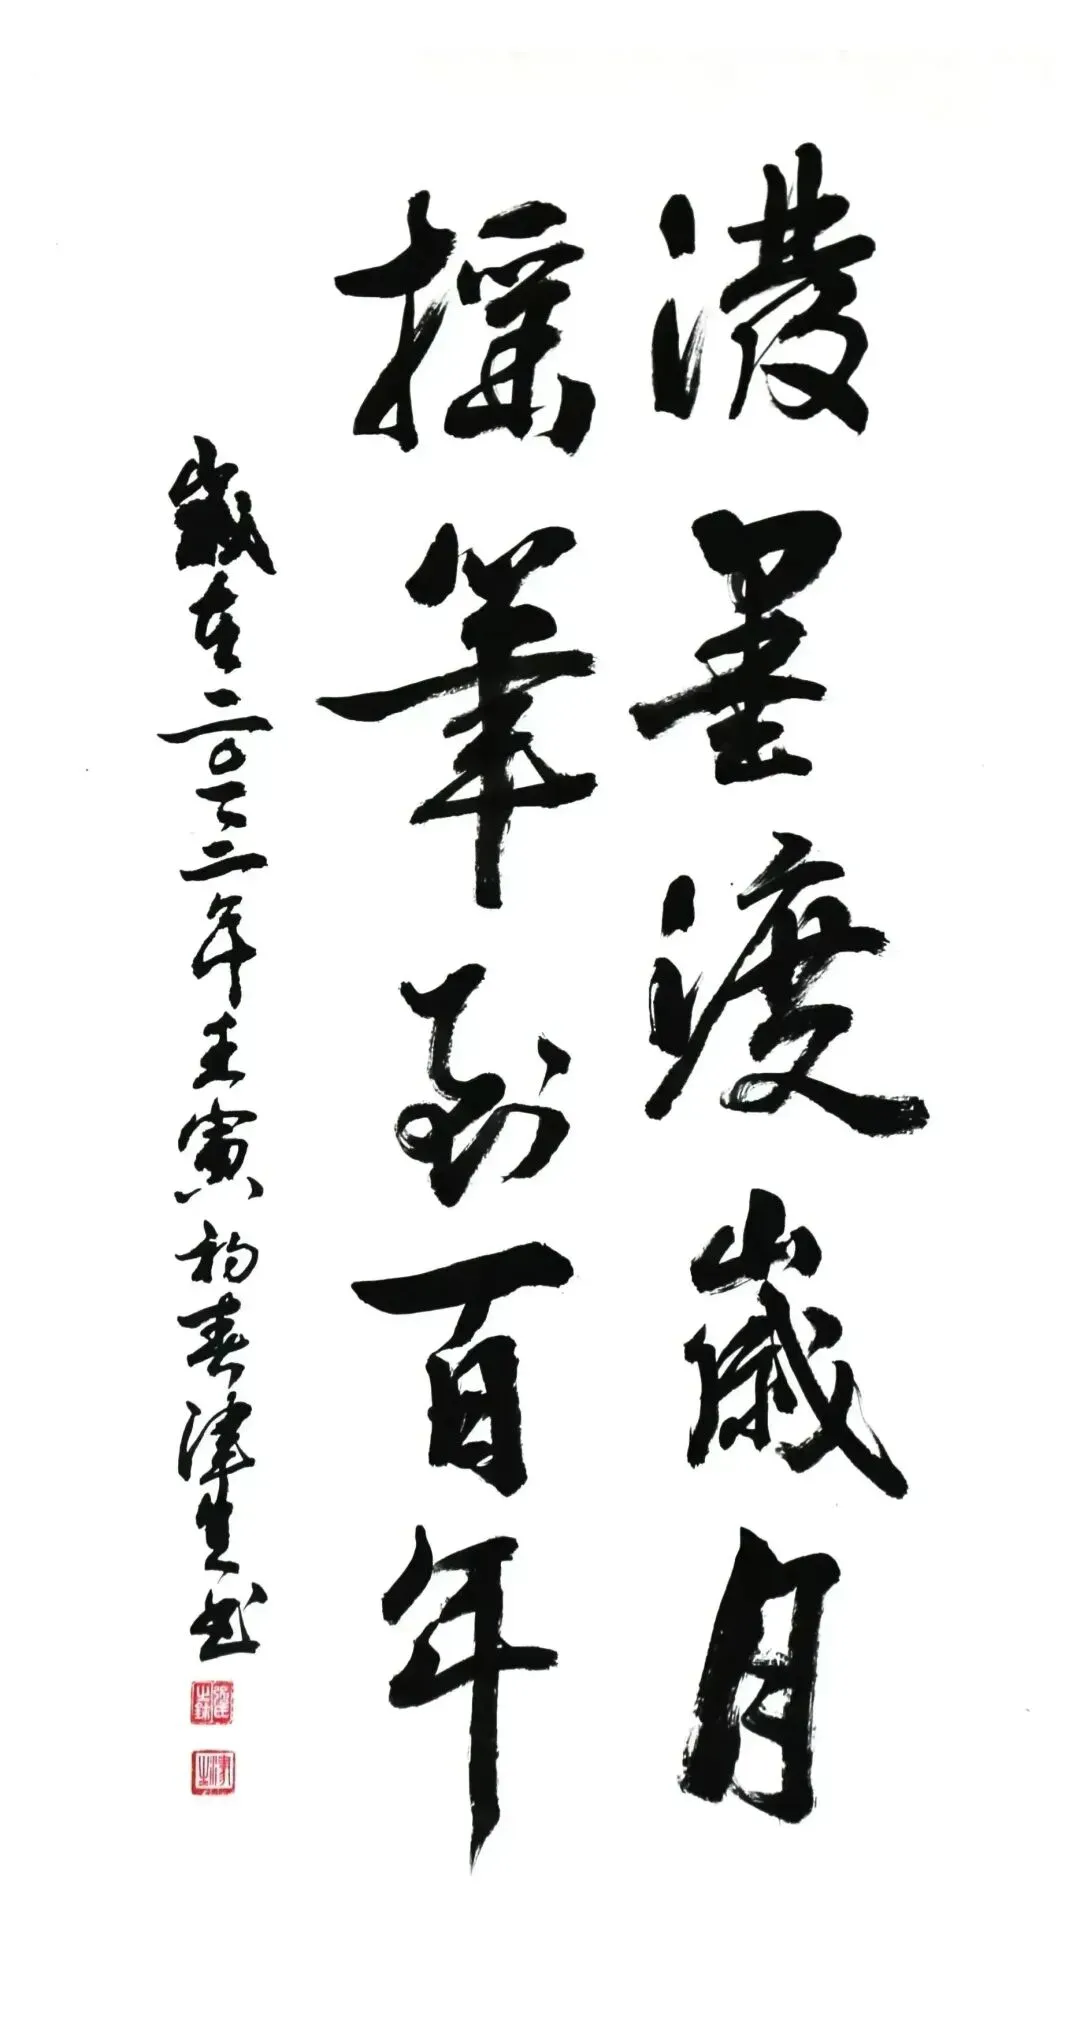 潑墨渡歲月
搖筆到百年
歲在二〇二二年壬寅初春津生书